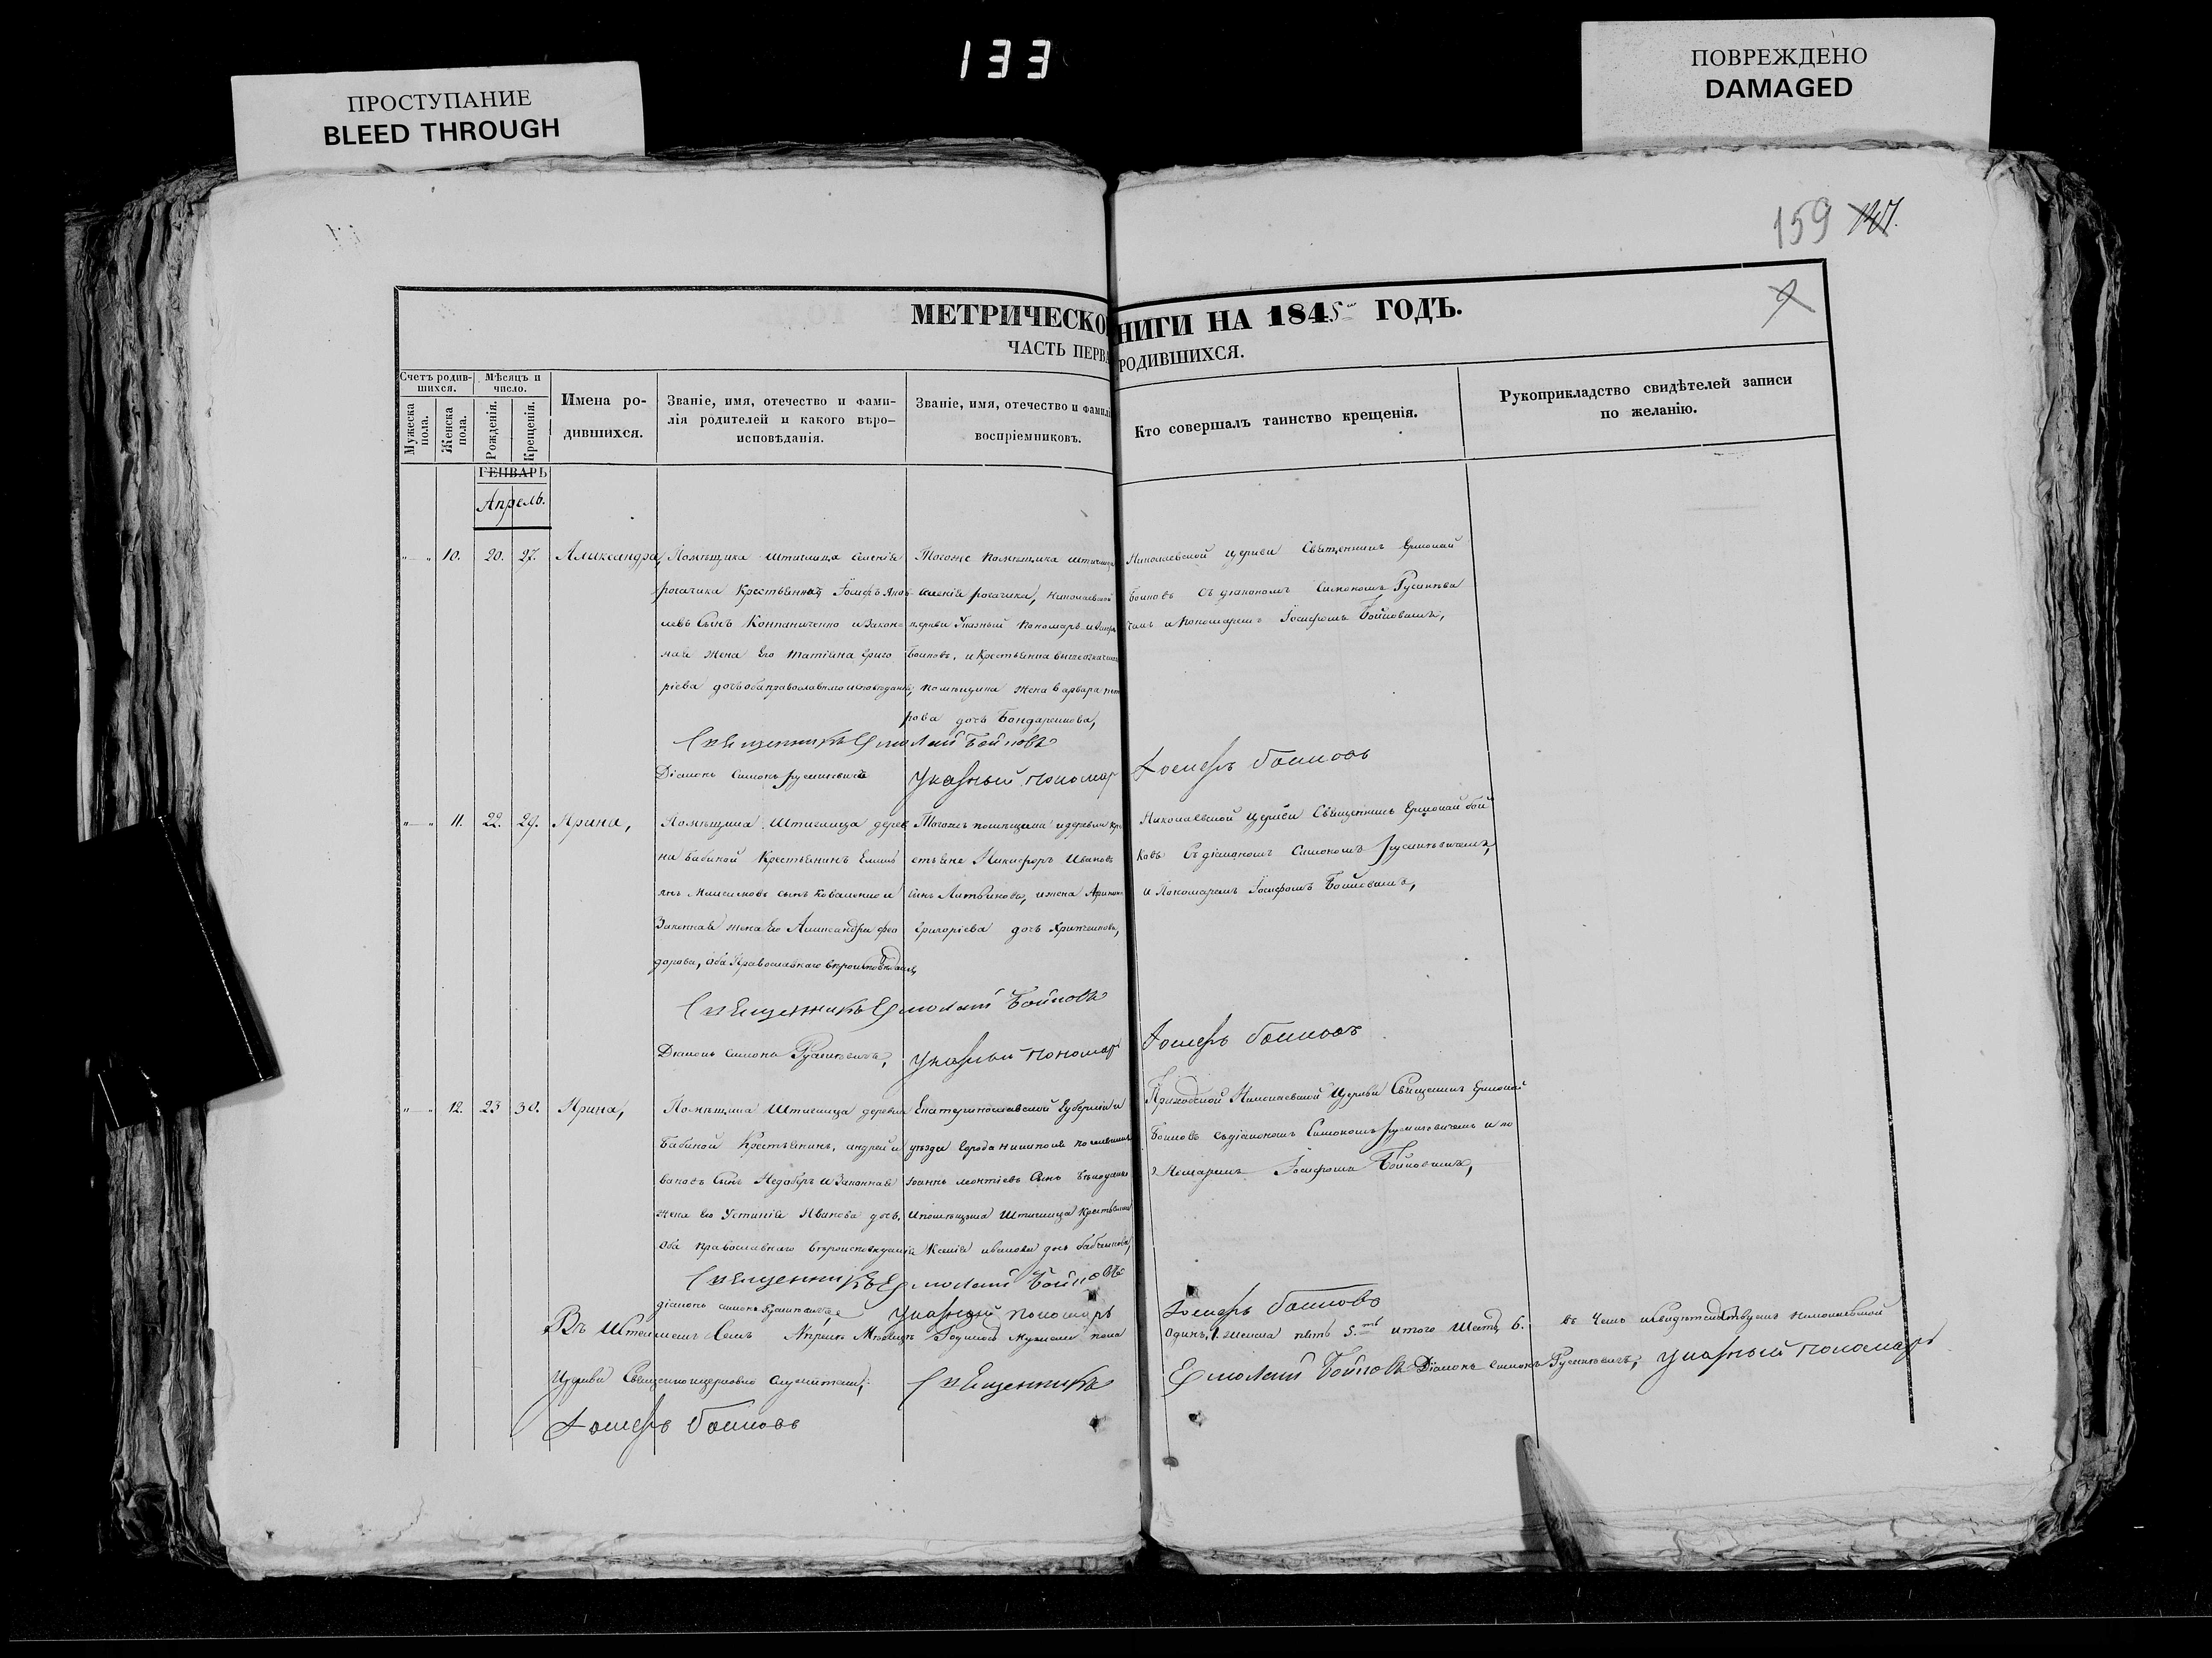 133
ПРОСТУПАНИЕ
BLEED THROUGH
ПОВРЕЖДЕНО
DAMAGED
159
МЕТРИЧЕСКО
НИГИ НА 1845 ГОДЪ.
ЧАСТЬ ПЕРВА
РОДИВШИХСЯ.
Счетъ родив-
шихся.
Мѣсяцъ и
число.
Мужеска
пола.
Женска
пола.
Рожденія.
Крещенія.
Имена ро-
дившихся.
Званіе, имя, отечество и фами-
лія родителей и какого вѣро-
исповѣданія.
Званіе, имя, отечество и фамилі
воспріемниковъ.
Кто совершалъ таинство крещенія.
Рукоприкладство свидѣтелей записи
по желанію.
ГЕНВАРЬ
Апрель.
10. 20. 27. Александра,
Помѣщика Штиглица селенія
рогачика Крестьянинъ Іосифъ
левъ Сынъ Компаниченко и Закон=
ная жена Его Татіяна Григо
ріева дочь оба православнаго исповѣданія,
Тогоже помѣщика штиглица
селенія рогачика, Николаевской
церкви Указный Пономарь
Бойковъ, и Крестьянка
помѣщика жена Варвара
рова дочь Бондаренкова,
Николаевской церкви Священникъ Ермолай
Бойковъ съ діакономъ Симономъ
и пономаремъ Іосифомъ Бойковымъ,
Священникъ Ермолай Бойковъ
Діаконъ Симонъ
Указный пономар
Іосифъ бойковъ
11. 22. 29. Ирина,
Помѣщика Штиглица дерев
ни бабиной Крестьянинъ
сынъ Коваленко и
Законная жена Его Александра Фео
дорова, оба Православнаго вѣроисповѣданія,
Тогожъ помѣщика и деревни кре
стьяне Никифоръ Ивановъ
сынъ Литвиновъ, и жена
Григоріева дочь
Николаевской церкви Священникъ Ермолай бой
ковъ съ діакономъ Симономъ
и Пономаремъ Іосифомъ Бойковымъ,
Священникъ Ермолай Бойковъ
Діаконъ Симонъ
Указный пономар
Іосифъ бойковъ
12. 23 30. Ирина,
Помѣщика Штиглица деревни
бабиной Крестьянинъ, андрей и
вановъ Сынъ и Законная
жена Его Устинія Иванова дочь,
Оба православнаго вѣроисповѣданія
Екатеринославской Губерніи и
уѣзда города никополя
Іоаннъ леонтіевъ Сынъ
и помѣщика Штиглица Крестьянка
иванова дочь
Приходской Николаевской Церкви Священникъ Ермолай
Бойковъ съ діакономъ Симономъ и по
номаремъ Іосифомъ Бойковымъ,
Священникъ Ермолай Бойковъ
діаконъ симонъ
Указный пономарь
Іосифъ бойковъ
Апрелѣ Мѣсяцѣ Родилось мужеска пола
Одинъ, 1. женска пять 5. итого Шесть 6. въ Чемъ и свидѣтельствуемъ николаевской
Церкви Священноцерковно служители,
Священникъ
Ермолай Бойковъ Діаконъ Симонъ
Указный пономарь
Іосифъ бойковъ